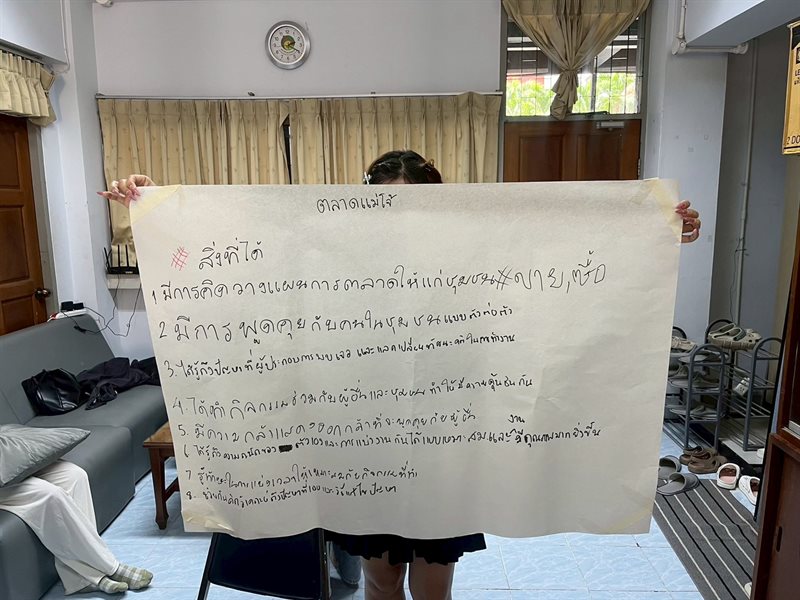 ตลาดแม่โจ้
# สิ่งที่ได้
1 มีการคิดวางแผนการตลาดให้แก่ชุมชน # ขาย, ซื้อ
2 มีการ พูดคุยกับคนในชุมชนแบบตัวต่อตัว
3. ได้รู้ถึงปัญหาที่ผู้ประกอบการพบเจอ และแลกเปลี่ยนทัศนะคติในการทำงาน
4. ได้ทำกิจกรรมร่วมกับผู้อื่นและชุมชน ทำให้มีความคุ้นชินกัน
5. มีความกล้าแสดงออกกล้าที่จะพูดคุยกับผู้อื่น
6 ได้รู้ถึงความถนัดของ ตัวเองและการแบ่งงานกันได้แบบเหมาะสมและงานมีคุณภาพมากยิ่งขึ้น
7 รู้ทักษะในการแบ่งเวลาให้เหมาะสมกับกิจกรรมที่ทำ
8.